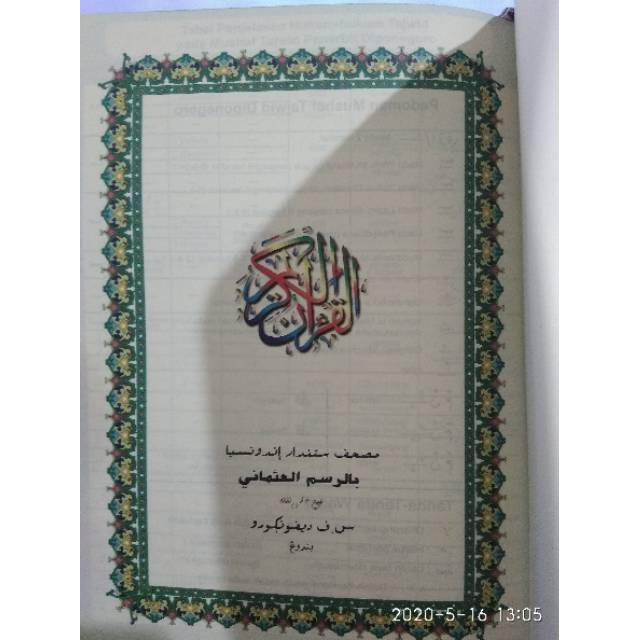 القرآن الكريم
مصحف ستندار إندونسيا
بالرسم العثماني
س.ف ديفونكورو
بندوڠ
2020-5-16 13:05